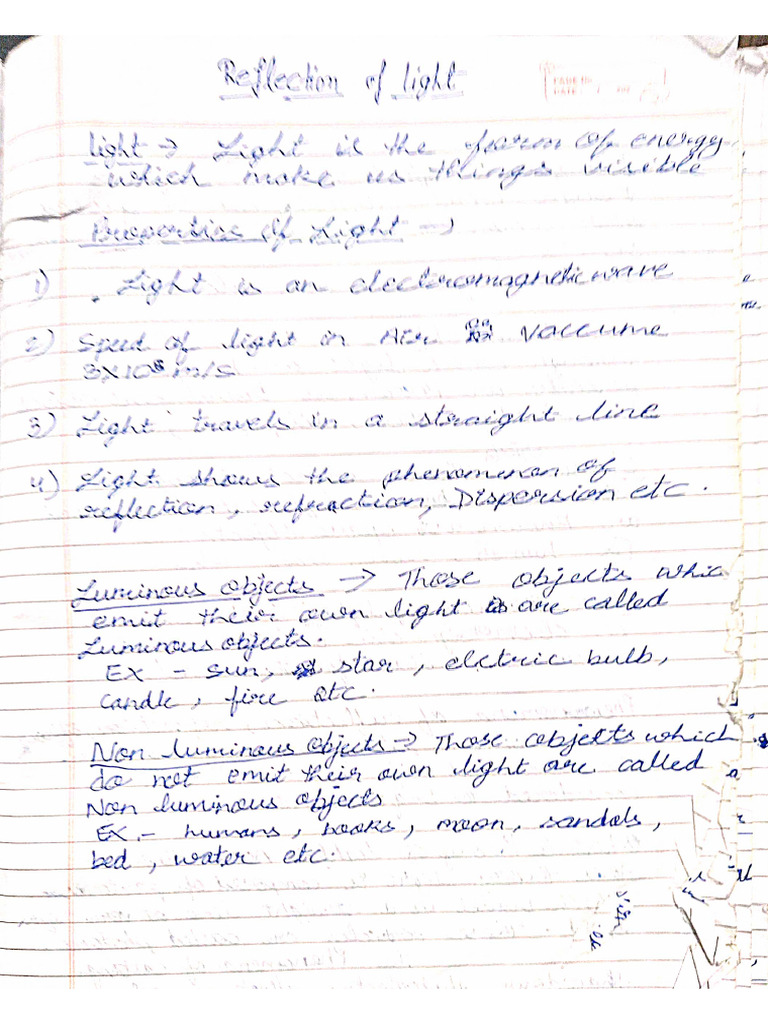 Reflection of light
light → Light is the form of energy
which make us things visible
Properties of Light →
1) Light is an electromagnetic wave
2) Speed of light in Air or Vaccume
3×10⁸ m/s
3) Light travels in a straight line
4) Light shows the phenomenon of
reflection, refraction, Dispersion etc.
Luminous objects → Those objects whic
emit their own light are called
Luminous objects.
Ex - sun, star, elctric bulb,
candle, fire etc.
Non luminous objects → Those objects which
do not emit their own light are called
Non luminous objects
Ex.- humans, books, moon, sandals,
bed, water etc.